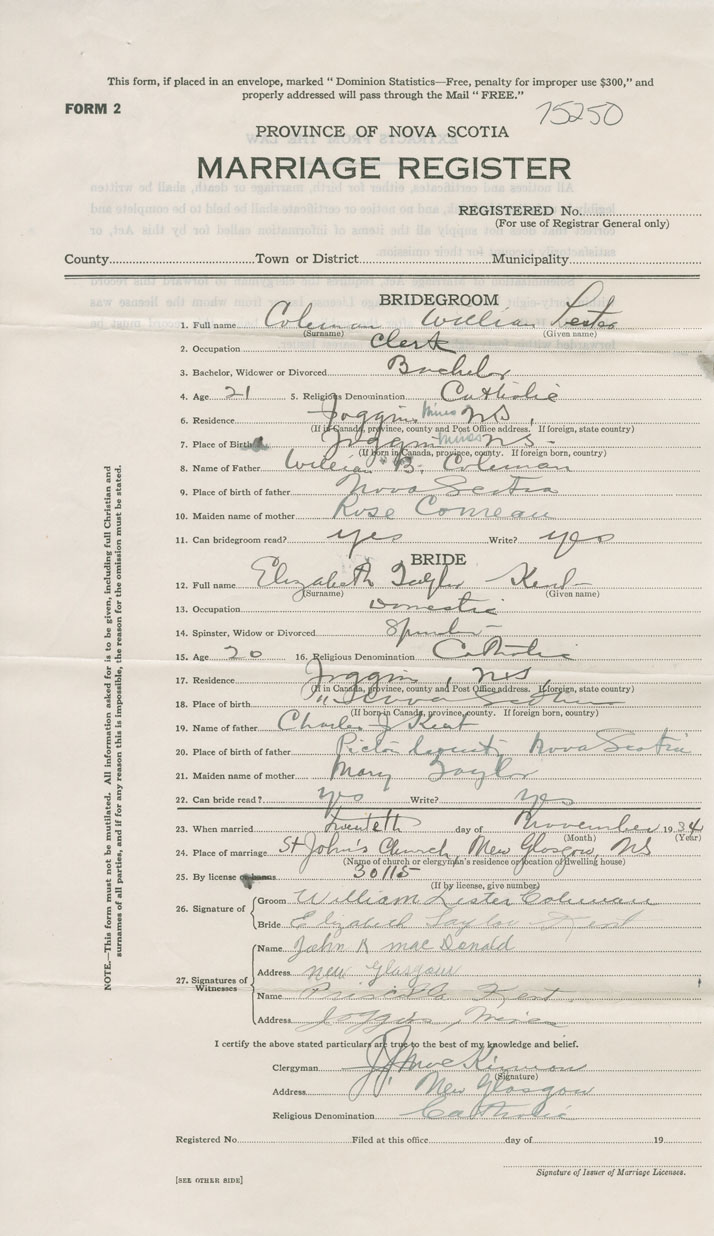 This form, if placed in an envelope, marked " Dominion Statistics—Free, penalty for improper use $300," and
properly addressed will pass through the Mail " FREE."
FORM 2
75250
PROVINCE OF NOVA SCOTIA
MARRIAGE REGISTER
REGISTERED No.
(For use of Registrar General only)
County Town or District Municipality
BRIDEGROOM
1. Full name Coleman William Lester
(Surname) (Given name)
2. Occupation Clerk
3. Bachelor, Widower or Divorced Bachelor
4. Age 21 5. Religious Denomination Catholic
6. Residence Joggins Mines NS
(If in Canada, province, county and Post Office address. If foreign, state country)
7. Place of Birth Joggins Mines NS
(If born in Canada, province, county. If foreign born, country)
8. Name of Father William B. Coleman
9. Place of birth of father Nova Scotia
10. Maiden name of mother Rose Comeau
11. Can bridegroom read? yes Write? yes
BRIDE
12. Full name Elizabeth Taylor Kent
(Surname) (Given name)
13. Occupation Domestic
14. Spinster, Widow or Divorced Spinster
15. Age 20 16. Religious Denomination Catholic
17. Residence Joggins, NS
(If in Canada, province, county and Post Office address. If foreign, state country)
18. Place of birth " Nova Scotia
(If born in Canada, province, county. If foreign born, country)
19. Name of father Charles J Kent
20. Place of birth of father Pictou County Nova Scotia
21. Maiden name of mother Mary Taylor
22. Can bride read? yes Write? yes
23. When married Twentieth day of November 1934
(Month) (Year)
24. Place of marriage St John's Church, New Glasgow, NS
(Name of church or clergyman's residence or location of dwelling house)
25. By license or banns 30115
(If by license, give number)
26. Signature of
Groom William Lester Coleman
Bride Elizabeth Taylor Kent
27. Signatures of Witnesses
Name John R MacDonald
Address New Glasgow
Name Priscilla Kent
Address Joggins, Mines
I certify the above stated particulars are true to the best of my knowledge and belief.
Clergyman MacKinnon
(Signature)
Address New Glasgow
Religious Denomination Catholic
Registered No. Filed at this office day of 19
Signature of Issuer of Marriage Licenses.
[SEE OTHER SIDE]
NOTE.—This form must not be mutilated. All information asked for is to be given, including full Christian and
surnames of all parties, and if for any reason this is impossible, the reason for the omission must be stated.